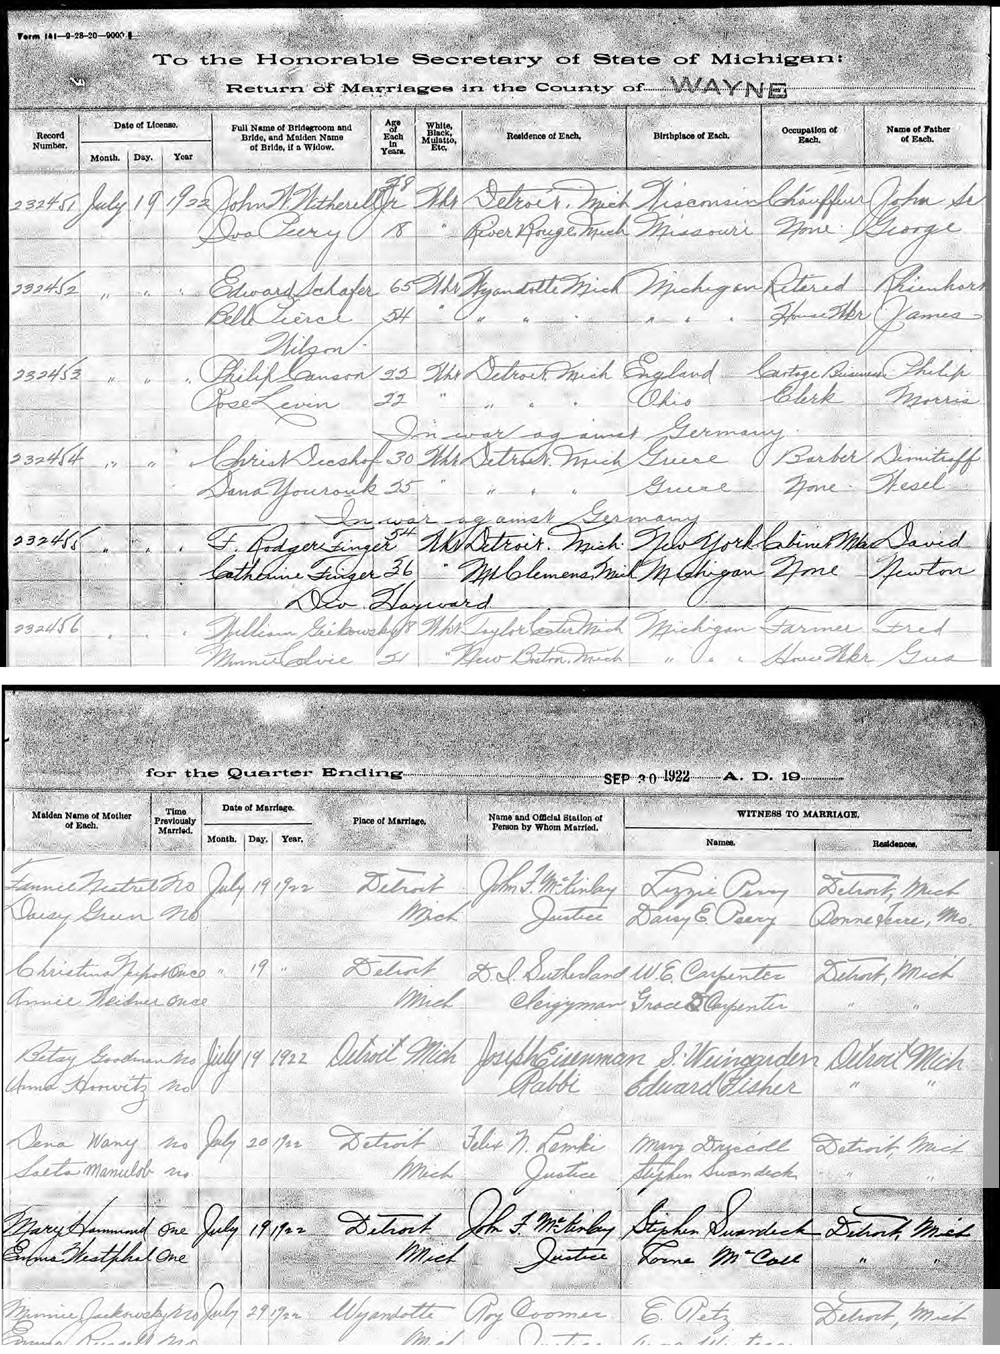 Form 141—9-28-20—9000
To the Honorable Secretary of State of Michigan:
Return of Marriages in the County of WAYNE
Record Number. Date of License. Month. Day. Year Full Name of Bridegroom and Bride, and Maiden Name of Bride, if a Widow. Age of Each in Years. White, Black, Mulatto, Etc. Residence of Each. Birthplace of Each. Occupation of Each. Name of Father of Each.
232451 July 19 1922 John W. Witherell Jr 28 Wht Detroit, Mich Wisconsin Chauffeur John Sr
Ova Peery 18 " River Rouge, Mich Missouri None George
232452 " " " Edward Schafer 65 Wht Wyandotte Mich Michigan Retered Rhienhart
Belle Pierce 54 " " " " " " " House Wkr James
Wilson
232453 " " " Philip Canson 22 Wht Detroit, Mich England Cartage Business Philip
Rose Levin 22 " " " " Ohio Clerk Morris
In war against Germany
232454 " " " Christ 30 Wht Detroit, Mich Greece Barber Dimitroff
25 " " " " Greece None
In war against Germany
232455 " " " F. Rodger Finger 54 Wht Detroit, Mich. New York Cabinet Mkr David
Catherine Finger 36 " Mt Clemens, Mich Michigan None Newton
Div. Hayward
232456 " " " William 18 Wht Taylor Center Mich Michigan Farmer Fred
Minnie 21 " New Boston, Mich " " " House Wkr Gus
for the Quarter Ending SEP 30 1922 A. D. 19
Maiden Name of Mother of Each. Time Previously Married. Date of Marriage. Month. Day. Year. Place of Marriage. Name and Official Station of Person by Whom Married. WITNESS TO MARRIAGE. Names. Residences.
Fannie No July 19 1922 Detroit John F. McKinlay Lizzie Perry Detroit, Mich
Daisy Green No Mich Justice Daisy E. Peery Bonne Terre, Mo.
Christina Once " 19 " Detroit D. I. Sutherland W. E. Carpenter Detroit, Mich
Annie Weidner Once Mich Clergyman Grace D Carpenter " "
Betsy Goodman No July 19 1922 Detroit Mich Joseph Eisenman S. Weingarden Detroit Mich
Anna Horwitz No Rabbi Edward Fisher " "
Dena Wany No July 20 1922 Detroit Felix N. Lemki Mary Driscoll Detroit, Mich
No Mich Justice Stephen Swandeck " "
Mary Hammond One July 19 1922 Detroit John F. McKinlay Stephen Swandeck Detroit, Mich
Emma Westphal One Mich Justice Lorne McCall " "
Minnie Jackowsky No July 29 1922 Wyandotte Roy Coomer E. Retz Detroit, Mich
Emma Russell No Mich Justice